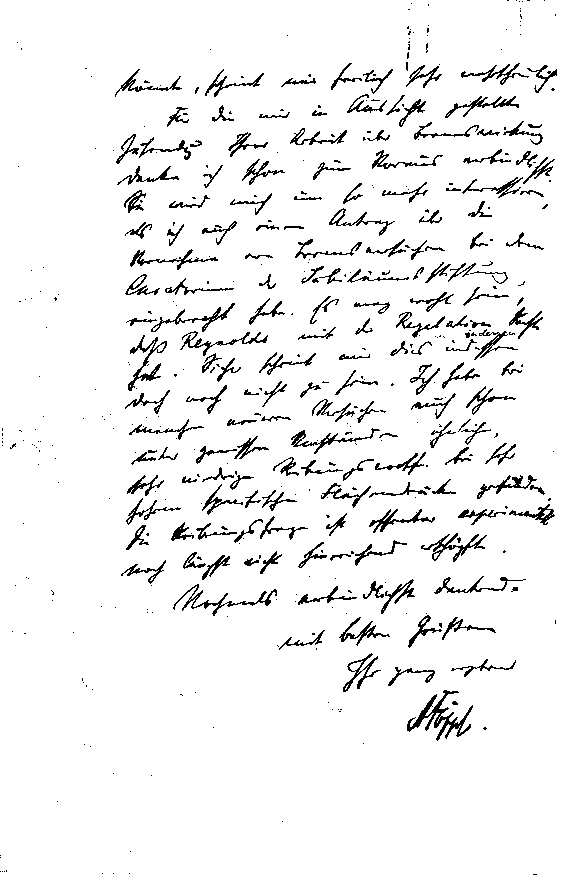 könnte, scheint mir freilich sehr unwahrscheinlich.
Für die mir in Aussicht gestellte
Zusendung Ihrer Arbeit über Bremswirkung
danke ich schon zum Voraus verbindlichst.
Sie wird mich um so mehr interessiren,
als ich auch einen Antrag über die
Vornahme von Bremsversuchen bei dem
Curatorium der Jubiläumsstiftung
eingebracht habe. Es mag wohl sein,
daß Reynolds mit der Regelation Recht
hat. Sicher scheint mir dies indessen
doch noch nicht zu sein. Ich habe bei
meinen neueren Versuchen auch schon
unter gewissen Umständen ähnliche,
sehr niedrige Reibungscoeff. bei sehr
hohem spezifischen Flächendrucke gefunden.
Die Reibungsfrage ist offenbar experimentell
noch längst nicht hinreichend erschöpft.
Nochmals verbindlichst dankend
mit besten Grüßen
Ihr ganz ergebener
AFöppl.